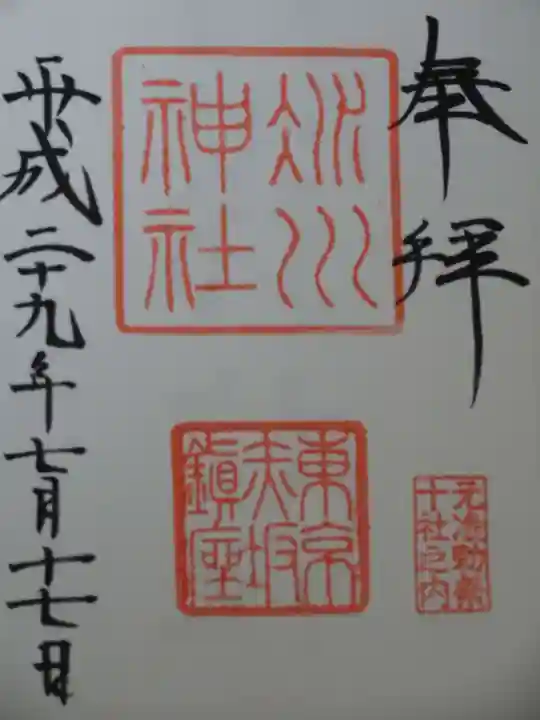 奉拝
氷川
神社
東京
赤坂
鎮座
元准勅祭
十社之内
平成二十九年七月十七日